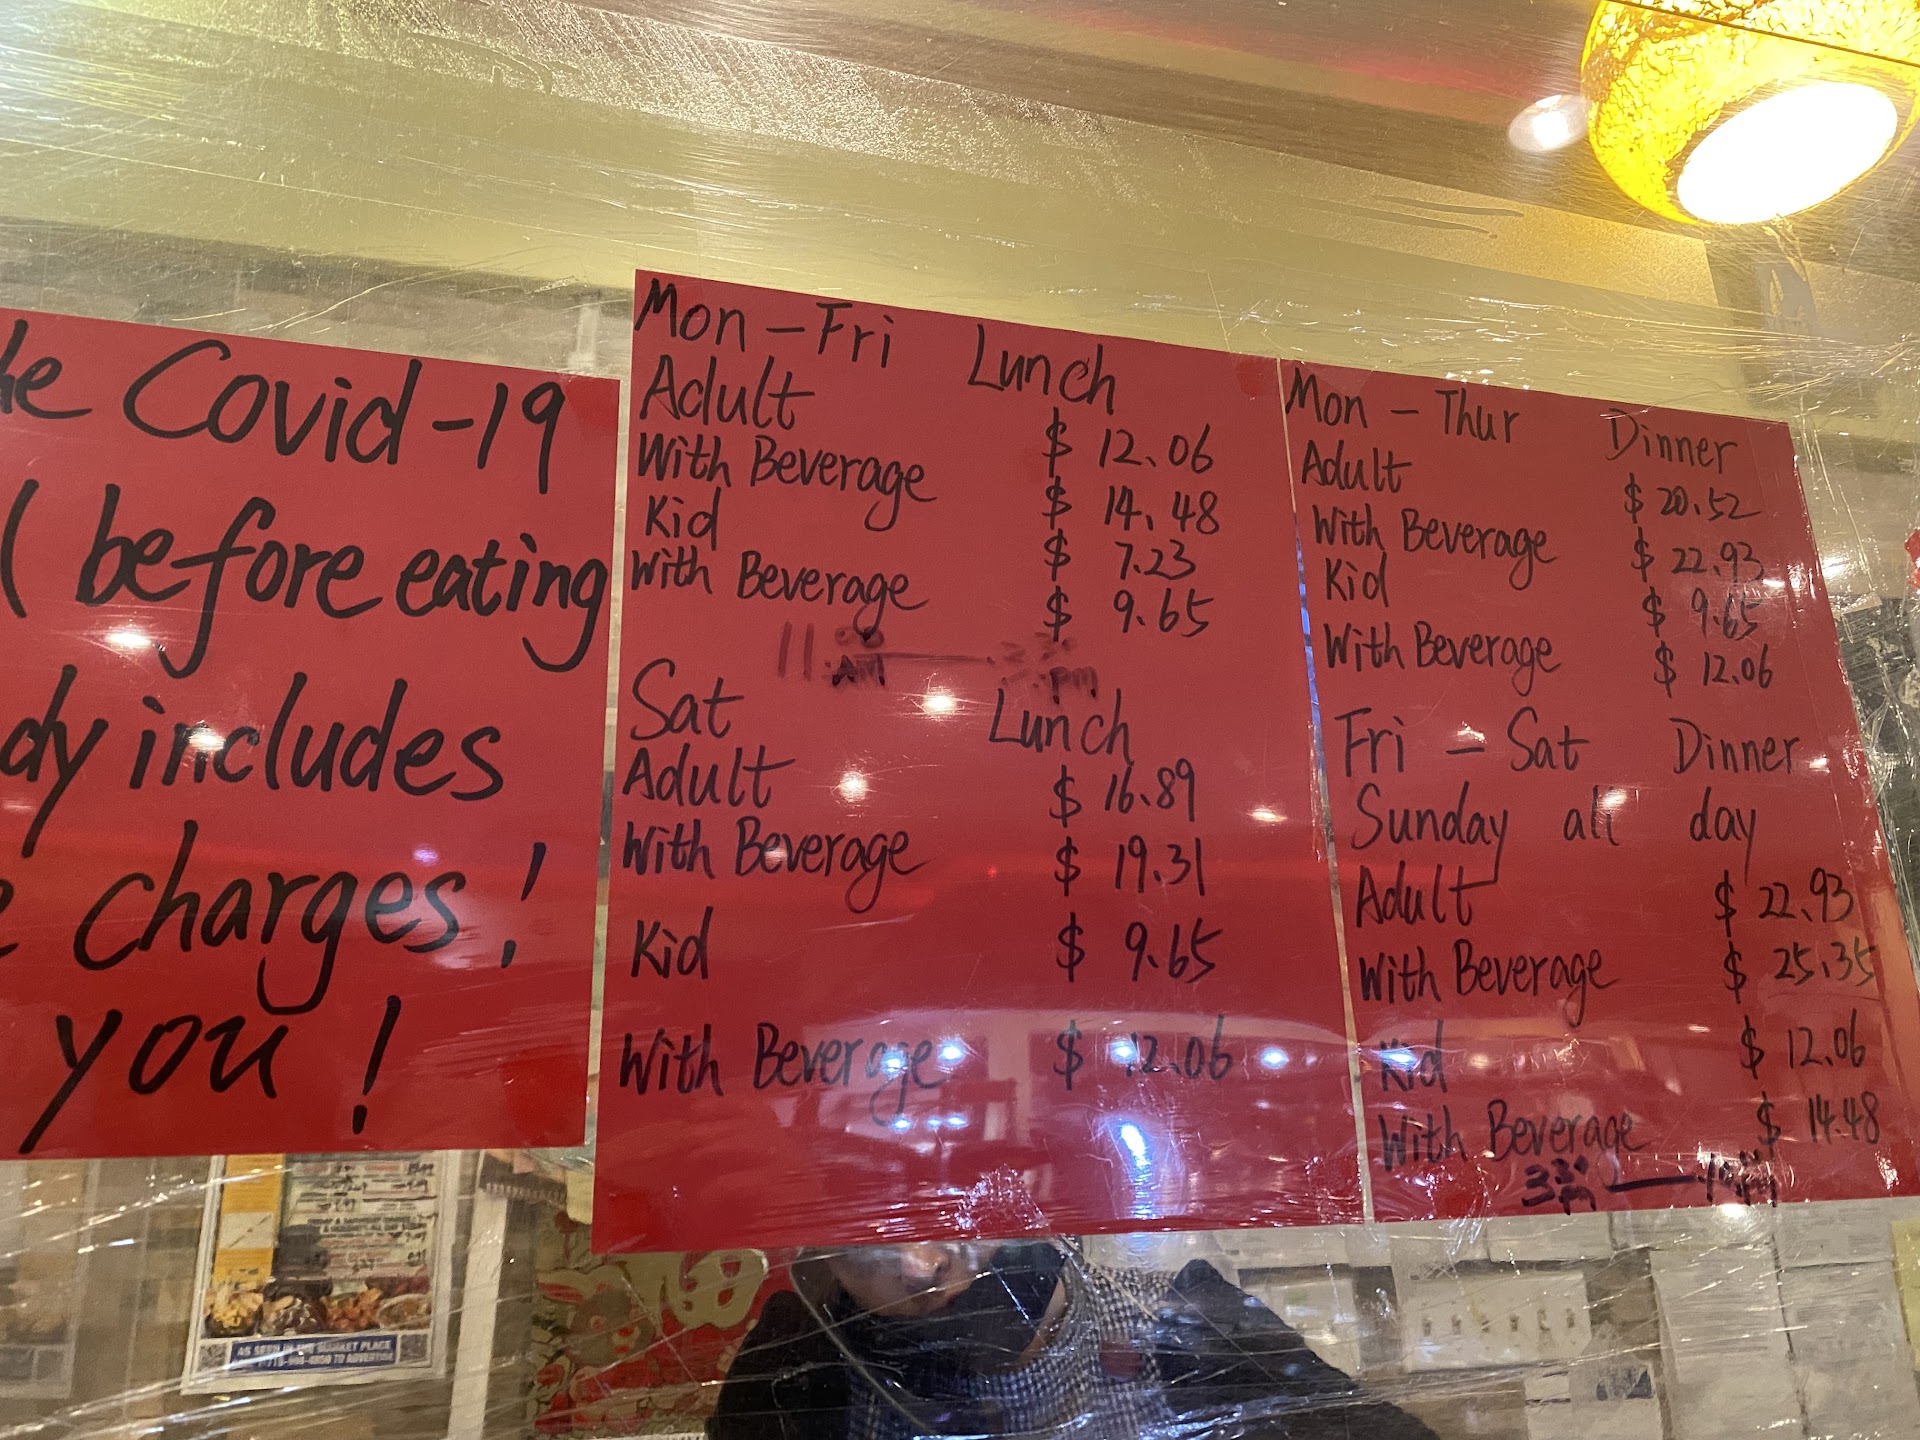 he Covid-19
before eating
dy includes
charges!
you!
Mon - Fri Lunch
Adult $ 12.06
With Beverage $ 14.48
Kid $ 7.23
With Beverage $ 9.65
11:00 AM — :30 pm
Sat Lunch
Adult $ 16.89
With Beverage $ 19.31
Kid $ 9.65
With Beverage $ 12.06
Mon - Thur Dinner
Adult $ 20.52
With Beverage $ 22.93
Kid $ 9.65
With Beverage $ 12.06
Fri - Sat Dinner
Sunday all day
Adult $ 22.93
With Beverage $ 25.35
Kid $ 12.06
With Beverage $ 14.48
3:30 pm —
AS SEEN IN THE MARKET PLACE
TO ADVERTISE